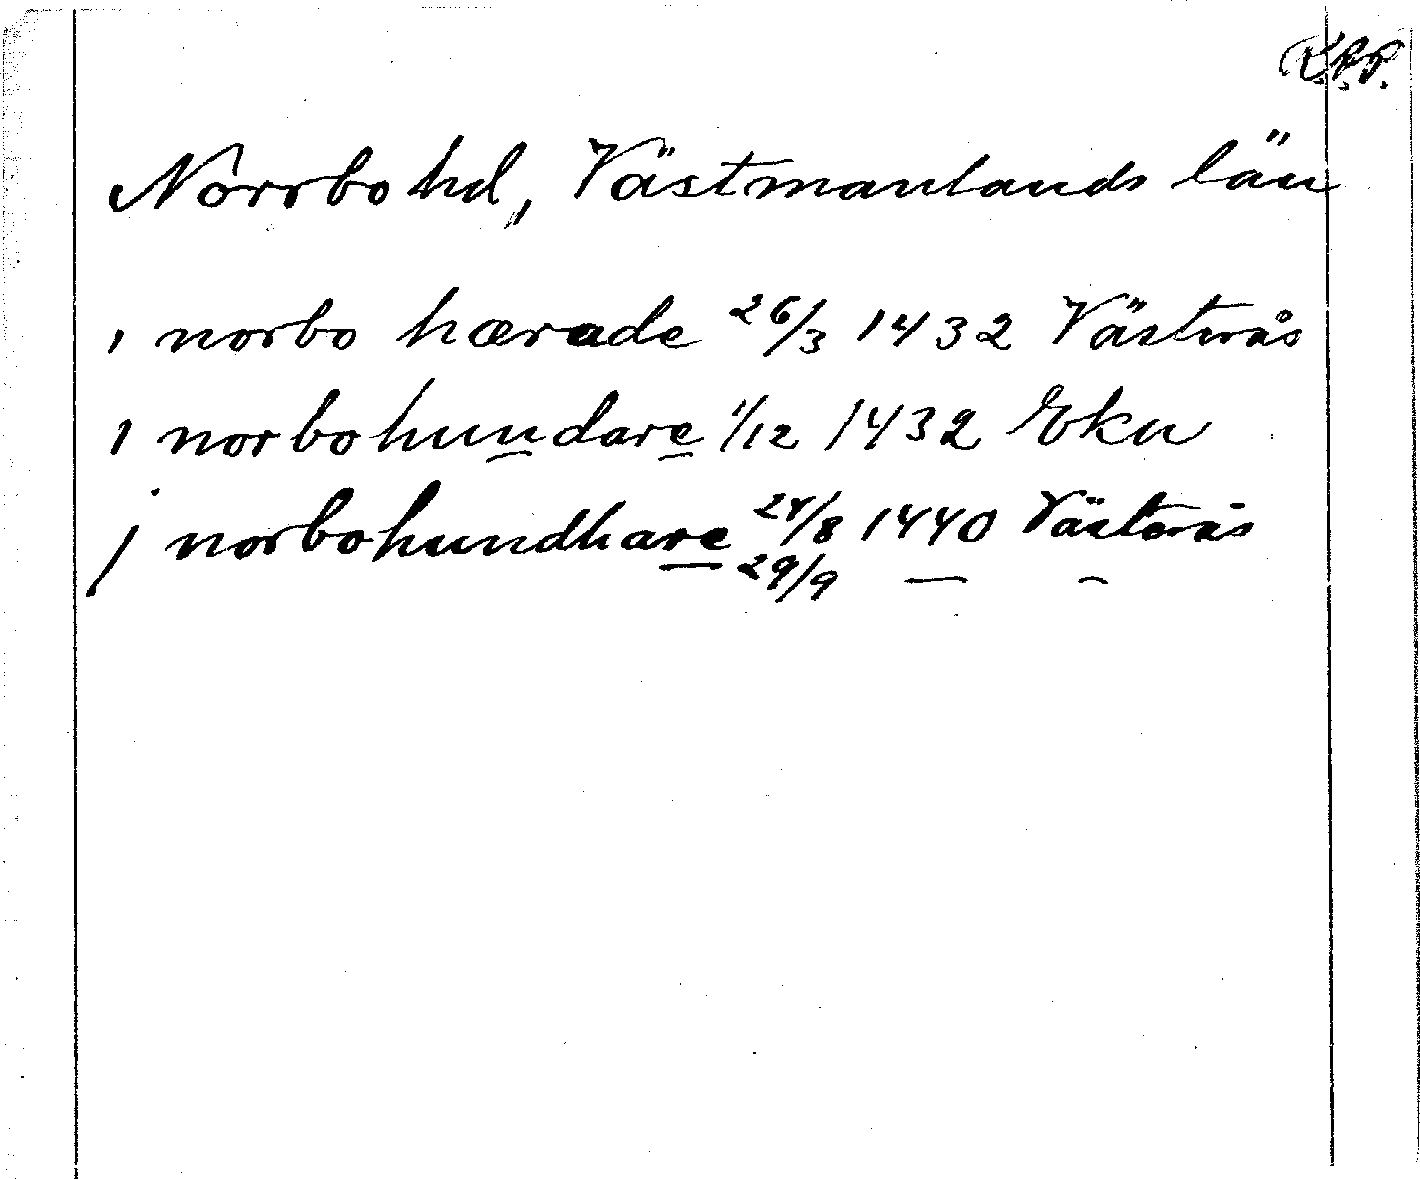 R.P.P.
Norrbo hd, Västmanlands län
ı norbo hærade 26/3 1432 Västerås
ı norbohundare 1/12 1432 Eku
j norbohundhare 24/8 1440 Västerås
29/9 — —